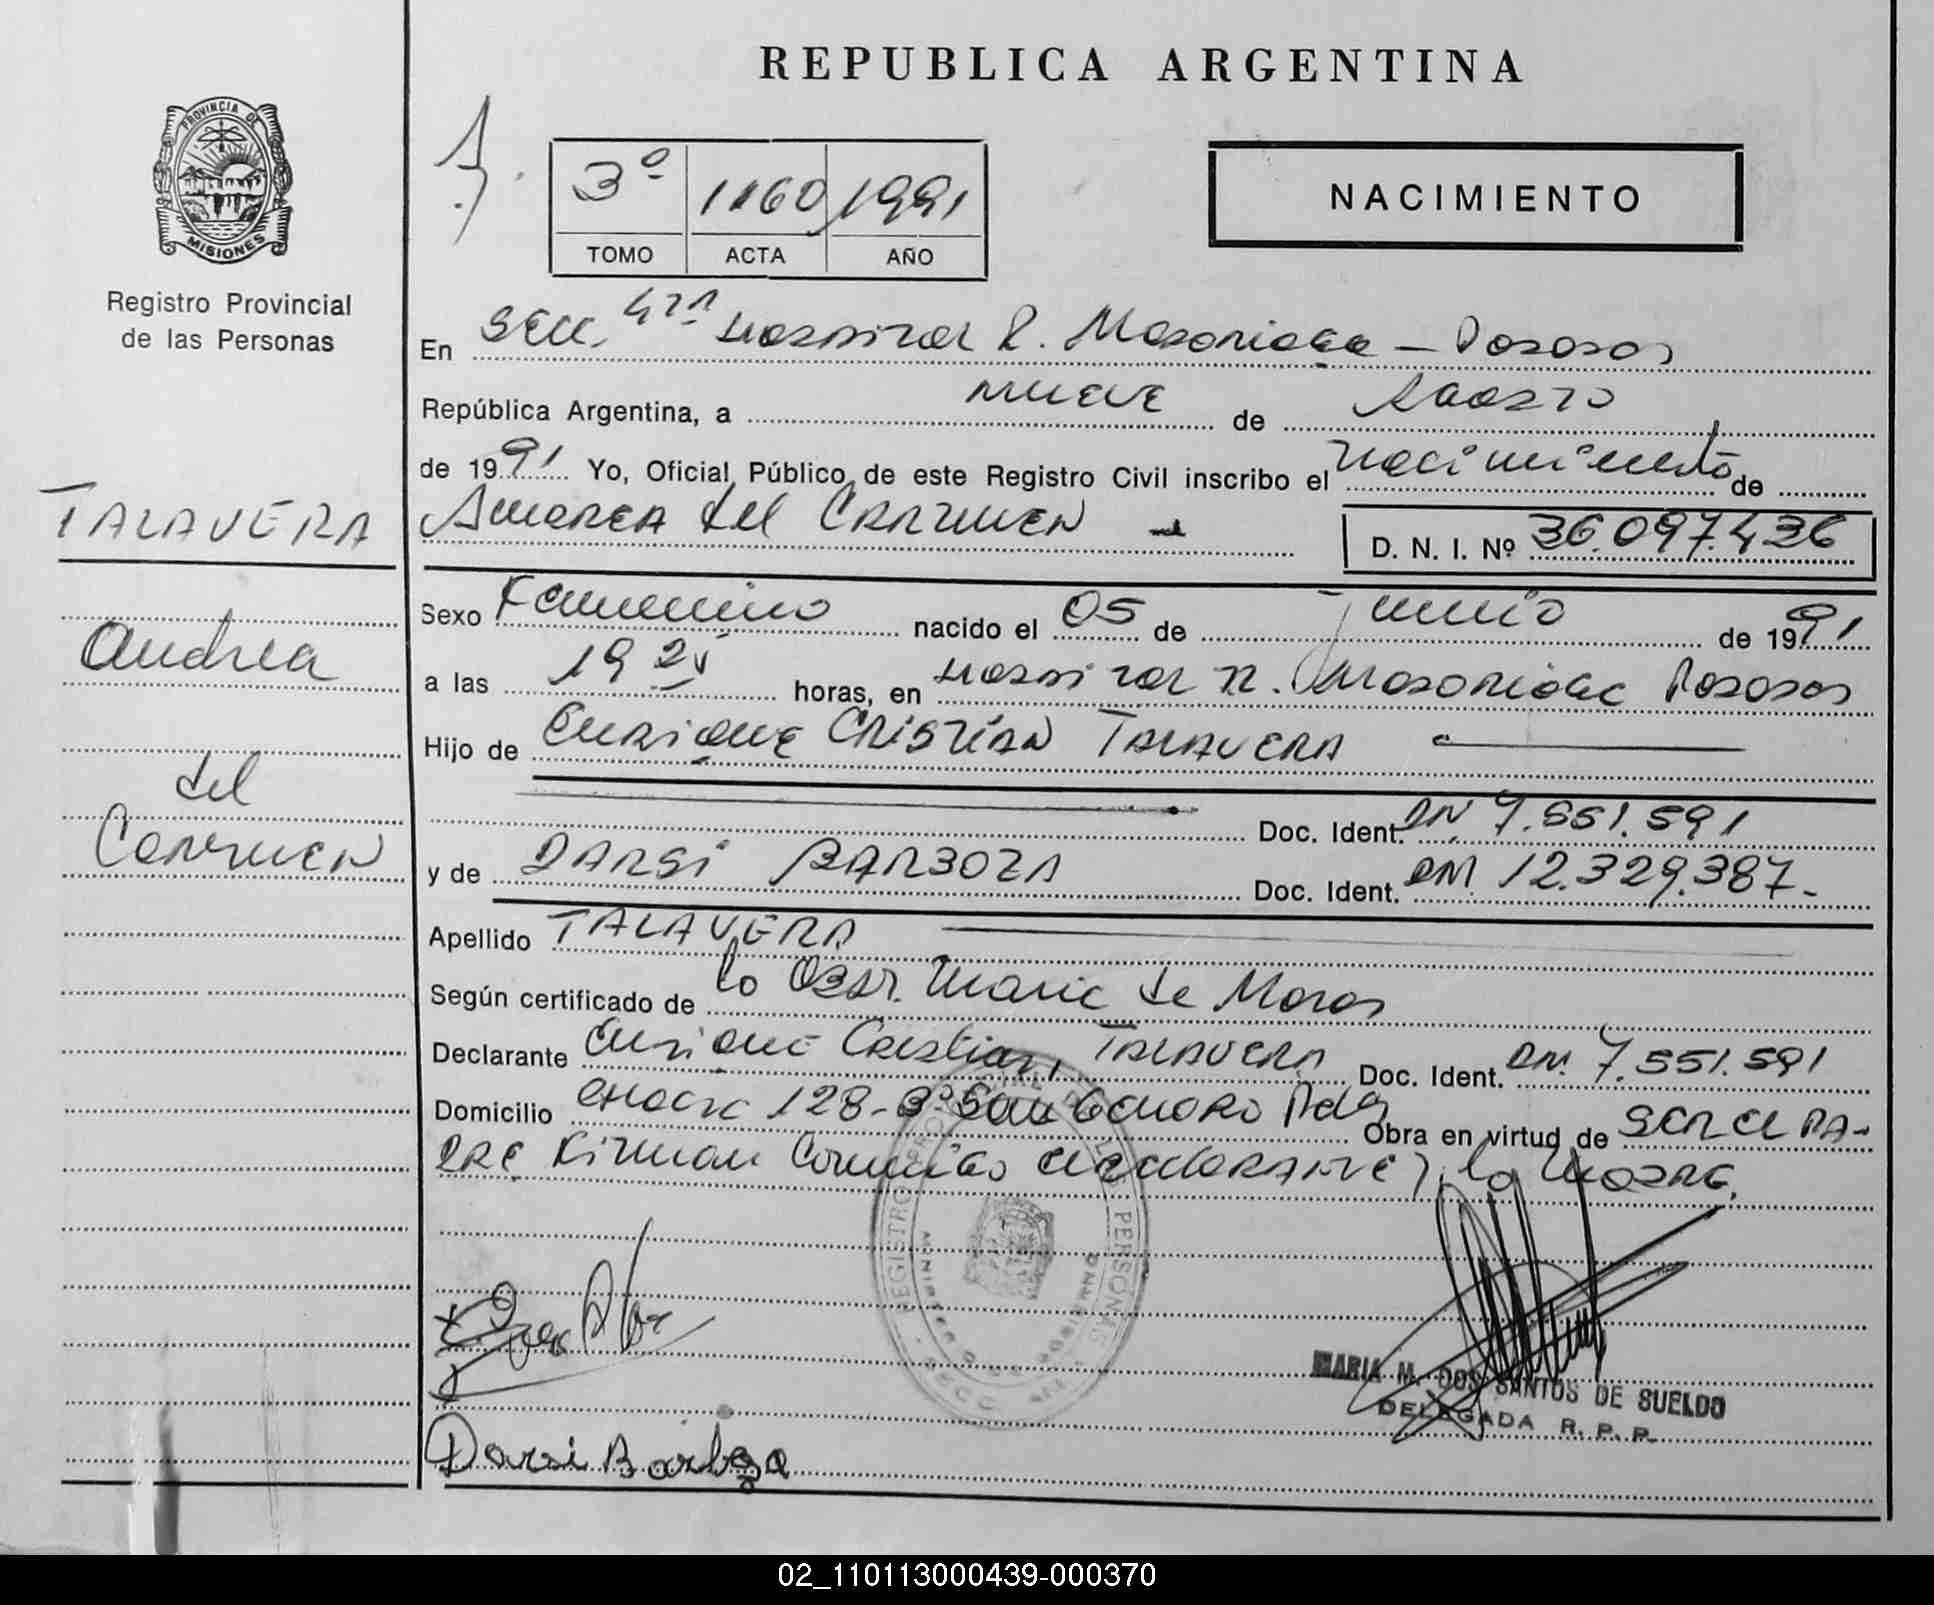 REPUBLICA ARGENTINA
PROVINCIA DE
MISIONES
Registro Provincial
de las Personas
3º 1160 1991
TOMO ACTA AÑO
NACIMIENTO
En Secc. 4ta Hospital R. Madariaga - Posadas
República Argentina, a nueve de Agosto
de 1991 Yo, Oficial Público de este Registro Civil inscribo el nacimiento de
Andrea del Carmen D. N. I. Nº 36.097.436
TALAVERA
Andrea
del
Carmen
Sexo Femenino nacido el 05 de junio de 1991
a las 19 horas, en Hospital R. Madariaga Posadas
Hijo de Enrique Cristián Talavera
Doc. Ident. DN. 7.551.591
y de DARSI BARBOZA Doc. Ident. DNI. 12.329.387.-
Apellido TALAVERA
Según certificado de la Obst. Maria de
Declarante Enrique Cristian TALAVERA Doc. Ident. DNI. 7.551.591
Domicilio 128 - Bº San Pdas Obra en virtud de SER el PA-
DRE Firman Conmigo el declarante y la Madre.
REGISTRO PROVINCIAL DE LAS PERSONAS
MINISTERIO DE GOBIERNO
MARIA M. DOS SANTOS DE SUELDO
DELEGADA R. P. P.
Darsi Barboza
02_110113000439-000370